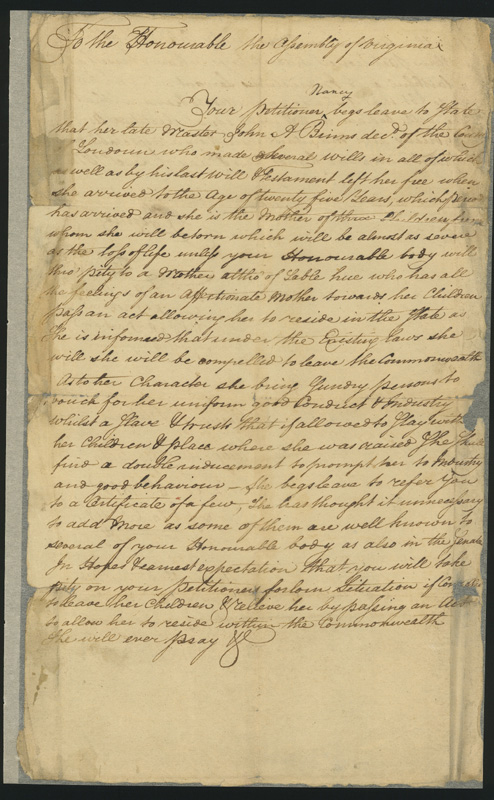 To the Honourable the Assembly of Virginia
Nancy
Your petitioner begs leave to State
that her late Master John A Binns decd. of the County
of Loudoun who made several wills in all of which
as well as by his last will & Testament left her free when
she arrived to the Age of twenty five Years, which period
has arrived and she is the Mother of three Children from
whom she will be torn which will be almost as severe
as the loss of life unless your Honourable body will
thro' pity to a Mother altho' of Sable hue who has all
the feelings of an Affectionate Mother towards her Children
pass an act allowing her to reside in the State as
She is informed that under the Existing laws she
will she will be compelled to leave the Commonwealth
As to her Character she brings Sundry persons to
vouch for her uniform good Conduct & Industry
whilst a Slave & trusts that if allowed to Stay with
her Children & place where she was raised She Shall
find a double inducement to prompt her to Industry
and good behaviour — She begs leave to refer you
to a Certificate of a few, She has thought it unnecessary
to add More as some of them are well known to
several of your Honourable body as also in the Senate
In Hopes & earnest expectation that you will take
pity on your petitioners forlorn Situation if
to leave her Children & relieve her by passing an Act
to allow her to reside within the Commonwealth
She will ever pray &c